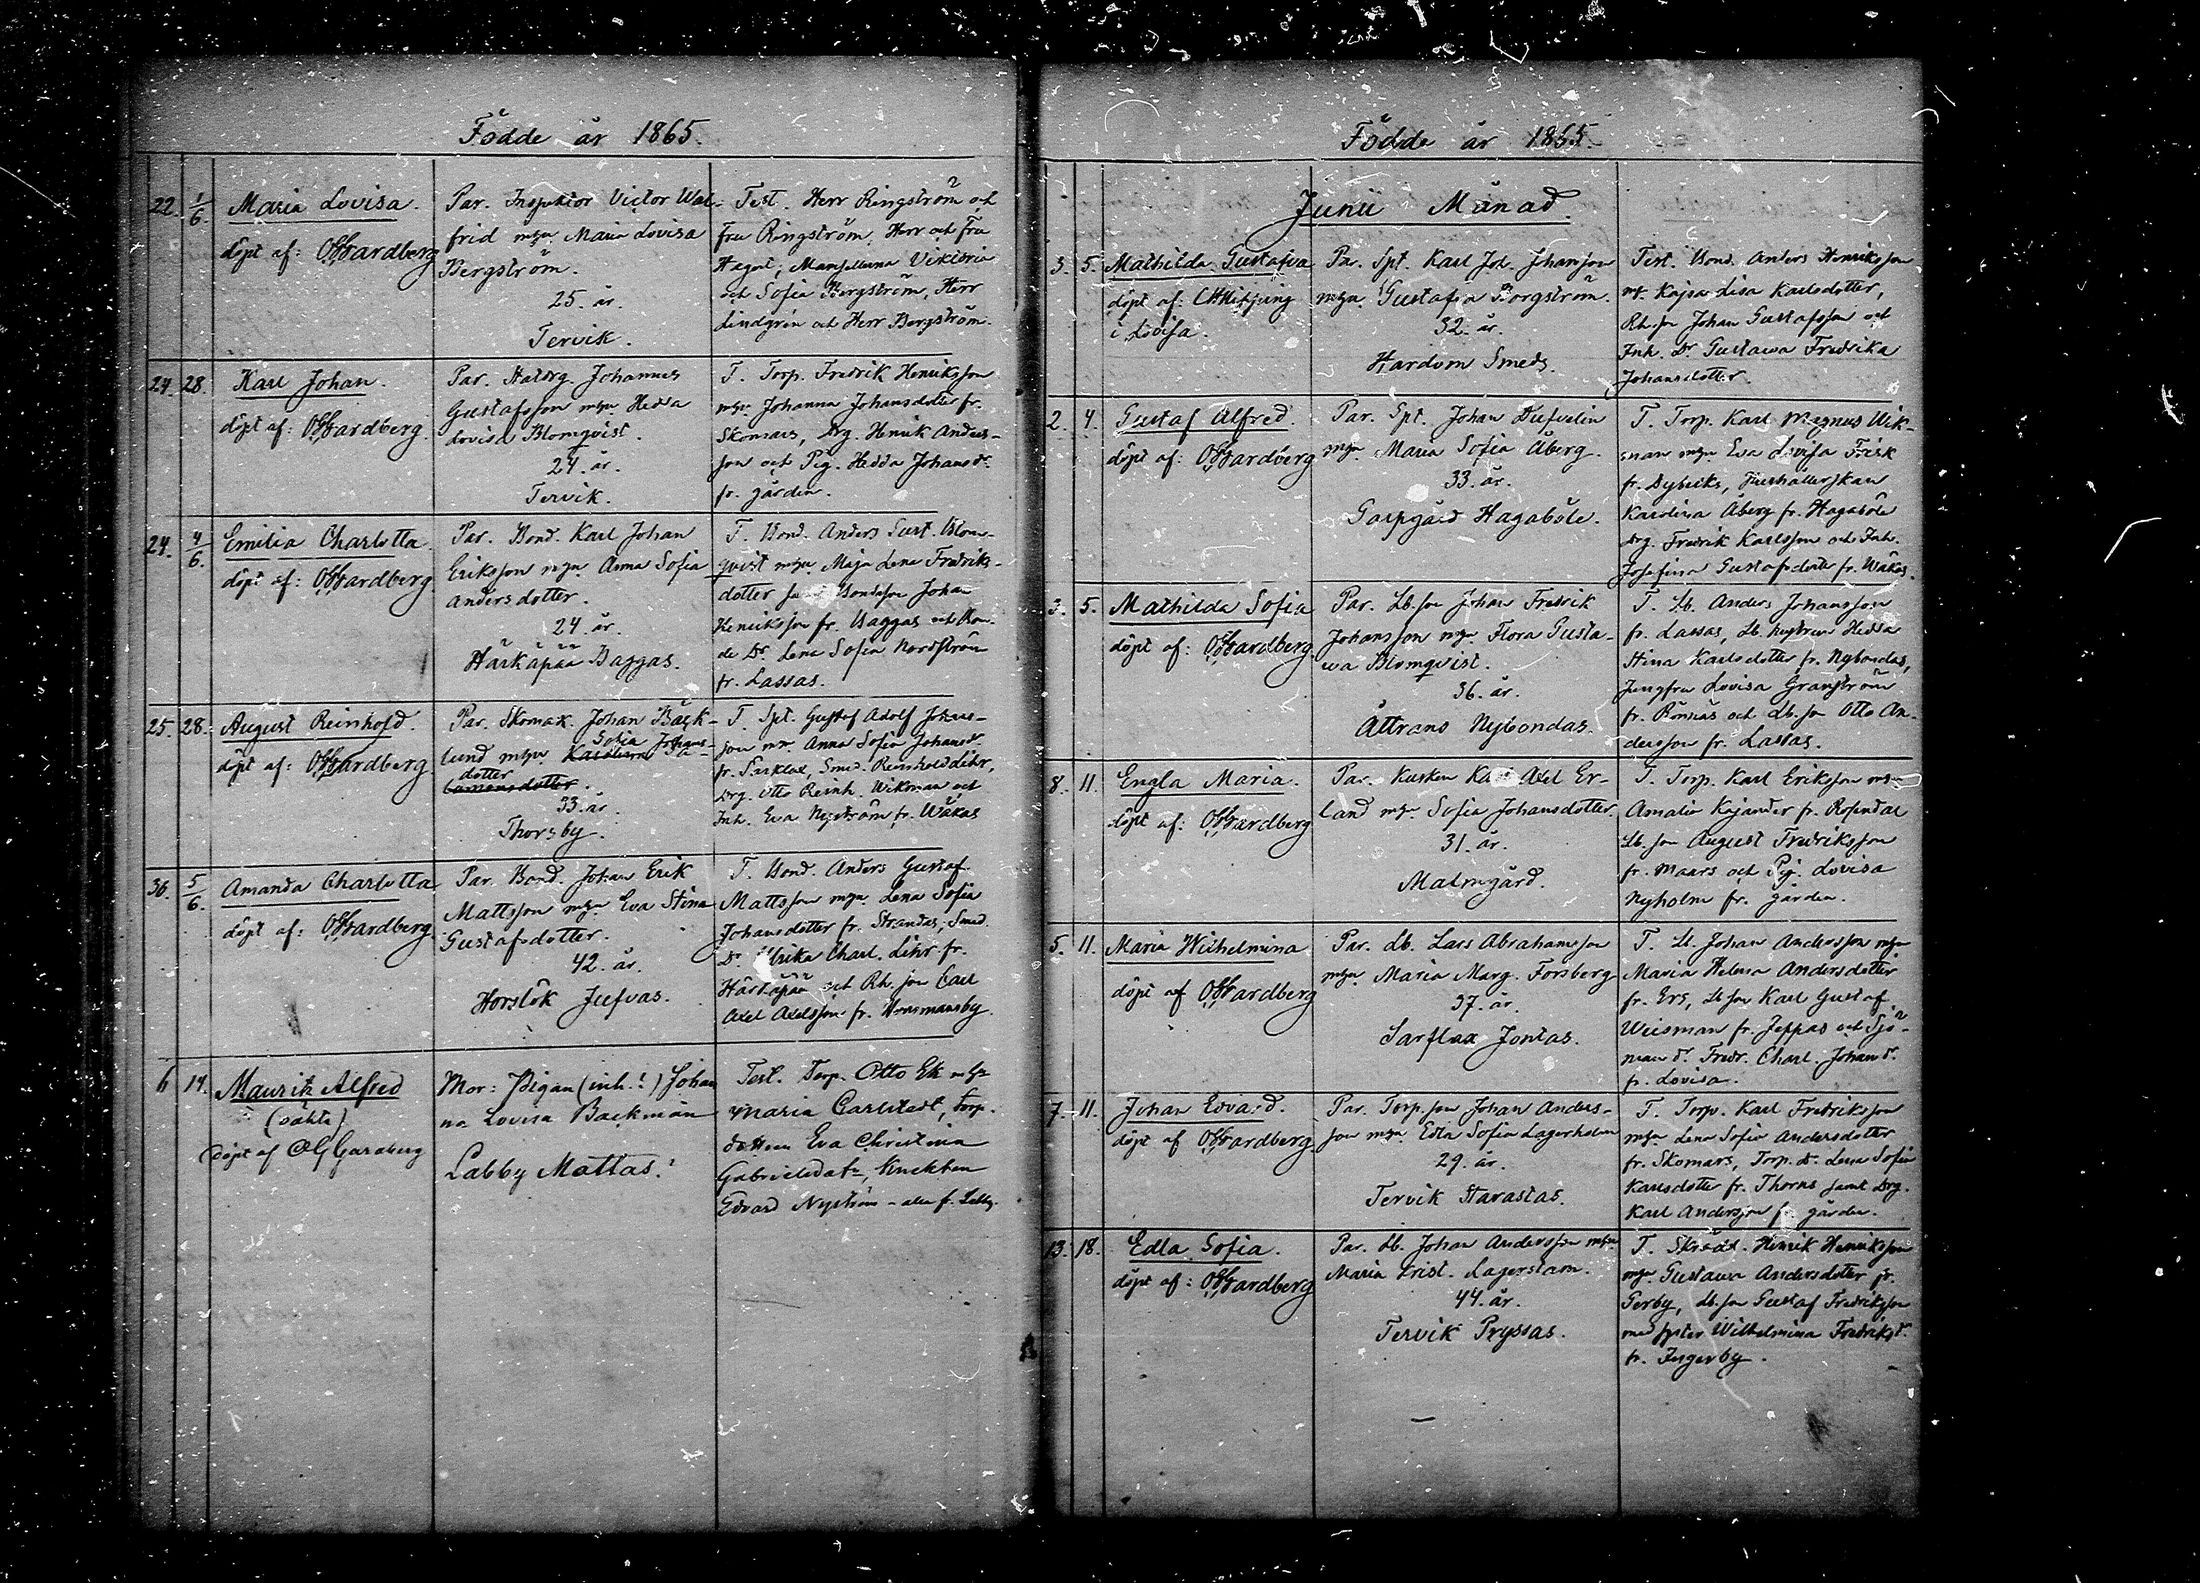 Födde år 1865.
22. 1/6. Maria Lovisa.
döpt af: OGGardberg
Par. Inspektor Victor Wal-
frid m hu Maria Lovisa
Bergström.
25. år.
Tervik.
Test. Herr Ringström och
Fru Ringström, Herr och Fru
Hagert, Mamsellerna Viktoria
och Sofia Bergström, Herr
Lindgrén och Herr Bergström.
24. 28. Karl Johan.
döpt af: OGGardberg.
Par. Statdrg. Johannes
Gustafsson m hu Hedda
Lovisa Blomqvist.
24. år.
Tervik.
T. Torp. Fredrik Henriksson
m hu Johanna Johansdotter fr.
Skomars, Drg. Henrik Anders-
son och Pig. Hedda Johansdr.
fr. gården.
24. 4/6. Emilia Charlotta.
döpt af: OGGardberg
Par. Bond. Karl Johan
Eriksson m hu Anna Sofia
Andersdotter.
24. år.
Härkäpää Baggas.
T. Bond. Anders Gust. Blom-
qvist m hu Maja Lena Fredriks-
dotter samt Bondeson Johan
Henriksson fr. Baggas och Bon-
de Dr. Lena Sofia Nordström
fr. Lassas.
25. 28. August Reinhold.
döpt af: OGGardberg
Par. Skomak. Johan Bäck-
lund m hu Karolina Sofia Johans-
dotter
33. år.
Thorsby.
T. Spt. Gustaf Adolf Johans-
son m hu Anna Sofia Johansdr.
fr. Sarklax, Smed. Reinhold Lihr,
Drg. Otto Reinh. Wikman och
Inh. Eva Nyström fr. Wåkas
36. 5/6. Amanda Charlotta
döpt af: OGGardberg.
Par. Bond. Johan Erik
Mattsson m hu Eva Stina
Gustafsdotter.
42. år.
Horslök Jufvas.
T. Bond. Anders Gustaf
Mattsson m hu Lena Sofia
Johansdotter fr. Strandas, Smed.
Dr. Ulrika Charl. Lihr fr.
Härkäpää och Rh. son Carl
Axel Axelsson fr. Hormansby.
6 14. Mauritz Alfred
(oäkta)
Döpt af OGGardberg
Mor: Pigan (inh.!) Johan
na Lovisa Backman
Labby Mattas!
Test. Torp. Otto Ek m hu
Maria Carlstedt, Torp.
dottern Eva Christina
Gabrielsdotr, Knekten
Edvard Nyström - alla fr. Labby.
Födde år 1865.
Junii Månad.
3. 5. Mathilda Gustafva
döpt af:
i Lovisa.
Par. Spt. Karl Joh. Johansson
m hu Gustafva Borgström.
32. år.
Hardom Smeds.
Test. Bond. Anders Henriksson
m h. Kajsa Lisa Karlsdotter,
Rh. son Johan Gustafsson och
Inh. Dr. Gustava Fredrika
Johansdotter.
2. 4. Gustaf Alfred.
döpt af: OGGardberg
Par. Spt. Johan Dufvelin
m hu Maria Sofia Åberg.
33. år.
Garpgård Hagaböle.
T. Torp. Karl Magnus Wik-
man m hu Eva Lovisa Frisk
fr. Dybäcks, Hushållerskan
Karolina Åberg fr. Hagaböle
Drg. Fredrik Karlsson och Inh.
Josefina Gustafsdotter fr. Wåkas.
3. 5. Mathilda Sofia
döpt af: OGGardberg
Par. Lb. son Johan Fredrik
Johansson m hu Flora Gusta-
va Blomqvist.
36. år.
Åttrans Nybondas.
T. Lb. Anders Johansson
fr. Lassas, Lb. hustrun Hedda
Stina Karlsdotter fr. Nybondas,
Jungfru Lovisa Granström
fr. Rönnäs och Lb. son Otto An-
dersson fr. Lassas.
8. 11. Engla Maria.
döpt af: OGGardberg
Par. Kusken Karl Axel Er-
land m hu Sofia Johansdotter.
31. år.
Malmgård.
T. Torp. Karl Eriksson m hu
Amalia Kajander fr. Rosendal
Lb. son August Fredriksson
fr. Maars och Pig. Lovisa
Nyholm fr. gården.
5. 11. Maria Wilhelmina
döpt af OGGardberg
Par. Lb. Lars Abrahamsson
m hu Maria Marg. Forsberg
37. år.
Sarflax Jontas.
T. Lb. Johan Andersson m hu
Maria Helena Andersdotter
fr. Ers, Lb. son Karl Gustaf
Weisman fr. Jeppas och Sjö-
man dr. Fredr. Charl. Johansdr.
fr. Lovisa.
7. 11. Johan Edvard.
döpt af OGGardberg
Par. Torp. son Johan Anders-
son m hu Edla Sofia Lagerholm
29. år.
Tervik Starastas.
T. Torp. Karl Fredriksson
m hu Lena Sofia Andersdotter
fr. Skomars, Torp. dr. Lena Sofia
Karlsdotter fr. Thorns samt Drg.
Karl Andersson fr. gården.
13. 18. Edla Sofia.
döpt af: OGGardberg
Par. Lb. Johan Andersson m hu
Maria Krist. Lagerstam.
44. år.
Tervik Pryssas.
T. Skrädd. Henrik Henriksson
m hu Gustava Andersdotter fr.
Gerby, Lb. son Gustaf Fredriksson
med syster Wilhelmina Fredriksdr.
fr. Ingerby.